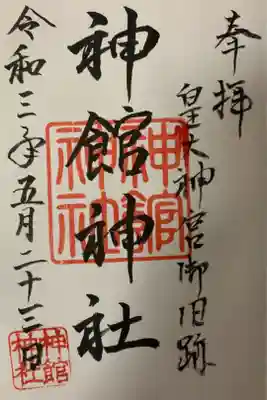 奉拝
皇大神宮御旧跡
神館神社
神館神社
令和三年五月二十三日
神館神社